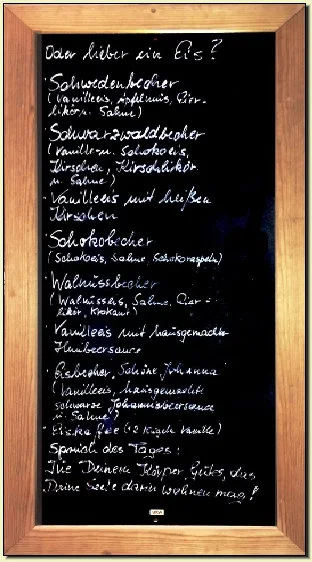 Oder lieber ein Eis?
· Schwedenbecher
(Vanilleeis, Apfelmus, Eier-
likör u. Sahne)
· Schwarzwaldbecher
(Vanille- u. Schokoeis,
Kirschen, Kirschlikör
u. Sahne)
· Vanilleeis mit heißen
Kirschen
· Schokobecher
(Schokoeis, Sahne, Schokoraspeln)
· Walnussbecher
(Walnusseis, Sahne, Eier-
likör, Krokant)
· Vanilleeis mit hausgemachter
Himbeersauce
· Eisbecher "Schöne Johanna"
(Vanilleeis, hausgemachte
schwarze Johannisbeersauce
u. Sahne)
· Eiskaffee (2 Kugeln Vanille)
Spruch des Tages:
Tue Deinem Körper Gutes, das
Deine Seele darin wohnen mag!